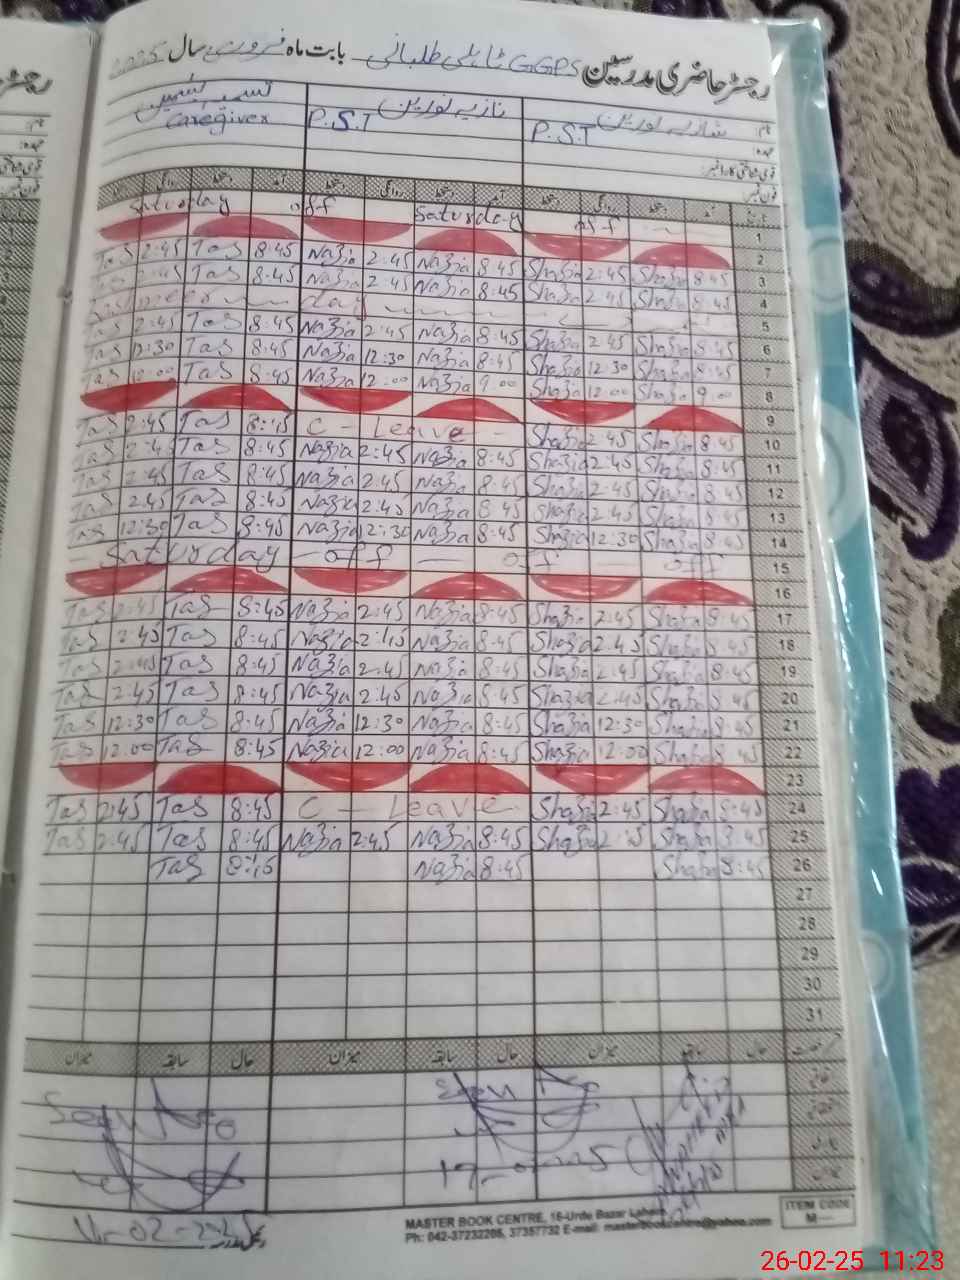 رجسٹر حاضری مدرسین GGPS ٹاہلی طلبانی بابت ماہ فروری سال 2025
نام: شازیہ نورین نازیہ نورین تسمیہ
عہدہ: P.S.T P.S.T Caregiver
قومی شناختی کارڈ نمبر:
فون نمبر:
Saturday off Saturday off 1
2
Tas 2:45 Tas 8:45 Nazia 2:45 Nazia 8:45 Shazia 2:45 Shazia 8:45 3
2:45 Tas 8:45 Nazia 2:45 Nazia 8:45 Shazia 2:45 Shazia 8:45 4
day 5
Tas 2:45 Tas 8:45 Nazia 2:45 Nazia 8:45 Shazia 2:45 Shazia 8:45 6
Tas 12:30 Tas 8:45 Nazia 12:30 Nazia 8:45 Shazia 12:30 Shazia 8:45 7
Tas 12:00 Tas 8:45 Nazia 12:00 Nazia 9:00 Shazia 12:00 Shazia 9:00 8
9
Tas 2:45 Tas 8:45 C - Leave - Shazia 2:45 Shazia 8:45 10
Tas 2:45 Tas 8:45 Nazia 2:45 Nazia 8:45 Shazia 2:45 Shazia 8:45 11
Tas 2:45 Tas 8:45 Nazia 2:45 Nazia 8:45 Shazia 2:45 Shazia 8:45 12
Tas 2:45 Tas 8:45 Nazia 2:45 Nazia 8:45 Shazia 2:45 Shazia 8:45 13
Tas 12:30 Tas 8:45 Nazia 12:30 Nazia 8:45 Shazia 12:30 Shazia 8:45 14
- Saturday - off - off - off 15
16
Tas 2:45 Tas 8:45 Nazia 2:45 Nazia 8:45 Shazia 2:45 Shazia 8:45 17
Tas 2:45 Tas 8:45 Nazia 2:45 Nazia 8:45 Shazia 2:45 Shazia 8:45 18
Tas 2:45 Tas 8:45 Nazia 2:45 Nazia 8:45 Shazia 2:45 Shazia 8:45 19
Tas 2:45 Tas 8:45 Nazia 2:45 Nazia 8:45 Shazia 2:45 Shazia 8:45 20
Tas 12:30 Tas 8:45 Nazia 12:30 Nazia 8:45 Shazia 12:30 Shazia 8:45 21
Tas 12:00 Tas 8:45 Nazia 12:00 Nazia 8:45 Shazia 12:00 Shazia 8:45 22
23
Tas 2:45 Tas 8:45 C - Leave - Shazia 2:45 Shazia 8:45 24
Tas 2:45 Tas 8:45 Nazia 2:45 Nazia 8:45 Shazia 2:45 Shazia 8:45 25
Tas 8:45 Nazia 8:45 Shazia 8:45 26
27
28
29
30
31
حال سابقہ میزان حال سابقہ میزان حال سابقہ میزان
ITEM CODE
M—
MASTER BOOK CENTRE, 16-Urdu Bazar Lahore
Ph: 042-37232205, 37357732 E-mail: masterbookcentre@yahoo.com
26-02-25 11:23